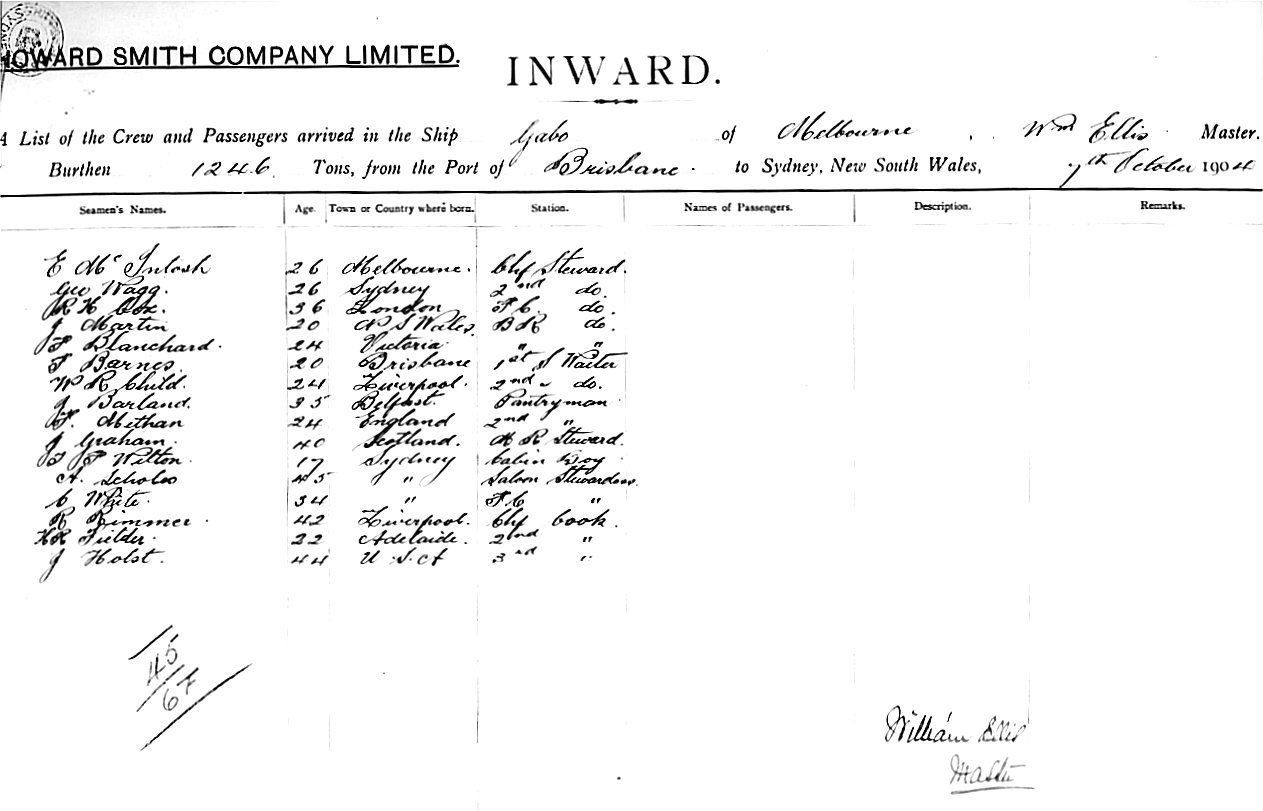 HOWARD SMITH COMPANY LIMITED.
INWARD.
A List of the Crew and Passengers arrived in the Ship Gabo of Melbourne, Wm Ellis Master.
Burthen 1246 Tons, from the Port of Brisbane. to Sydney, New South Wales, 7th October 1904
Seamen's Names. Age. Town or Country where born. Station. Names of Passengers. Description. Remarks.
E Mc Intosh 26 Melbourne. Chf Steward.
Geo Wagg. 26 Sydney 2nd do.
R H Cox. 36 London F C. do.
J Martin 20 N S Wales. B R do.
F Blanchard. 24 Victoria " "
F Barnes. 20 Brisbane 1st S Waiter
W R Child. 24 Liverpool. 2nd " do.
J Barland. 35 Belfast. Pantryman
F. Methan 24 England 2nd "
J Graham. 40 Scotland. M R Steward.
F P Wilton. 17 Sydney Cabin Boy
A. Scholes 45 " Saloon Stewardess.
C White. 34 " F C "
R Rimmer. 42 Liverpool. Chf Cook.
H R Fielder. 22 Adelaide. 2nd "
J Holst. 44 U.S.A 3rd "
45/67
William Ellis
Master